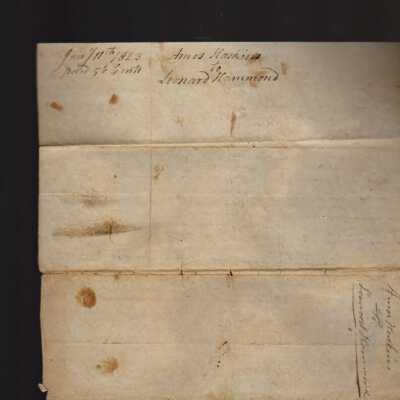 Jany 11th 1823
Amos Haskins
to
Leonard Hammond
Amos Haskins
Leonard Hammond